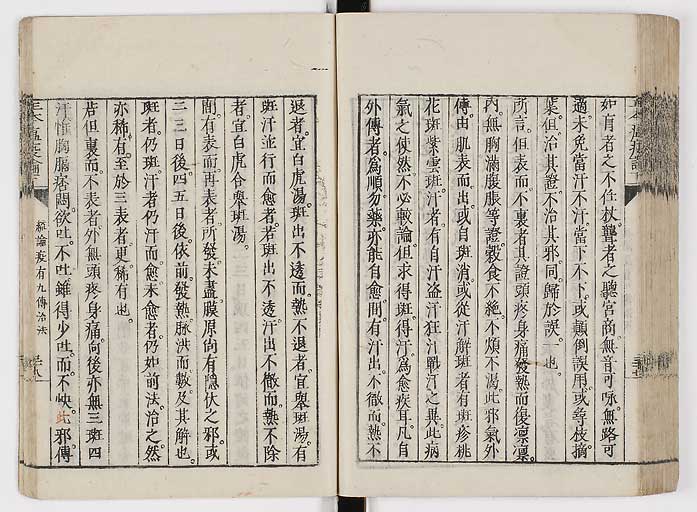 如盲者之不任杖聾者之聽宮商無音可求無路可
適未免當汗不汗當下不下或顛倒誤用或尋枝摘
葉但治其證不治其邪同歸於誤一也
所言但表而不裏者其證頭疼身痛發熱而復凛凛
內無胸滿腹脹等證穀食不絕不煩不渴此邪氣外
傳由肌表而出或自斑消或從汗解斑者有斑疹桃
花斑紫雲斑汗者有自汗盗汗狂汗戰汗之異此病
氣之使然不必較論但求得斑得汗爲愈疾耳凡自
外傳者爲順勿藥亦能自愈間有汗出不徹而熱不
退者宜白虎湯斑出不透而熱不退者宜舉斑湯有
斑汗並行而愈者若斑出不透汗出不徹而熱不除
者宜白虎合舉斑湯
間有表而再表者所發未盡膜原尚有隱伏之邪或
二三日後四五日後依前發熱脉洪而數及其解也
斑者仍斑汗者仍汗而愈未愈者仍如前法治之然
亦稀有至於三表者更稀有也
若但裏而不表者外無頭疼身痛向後亦無三斑四
汗惟胸膈痞悶欲吐不吐雖得少吐而不快此邪傳
統論疫有九傳治法